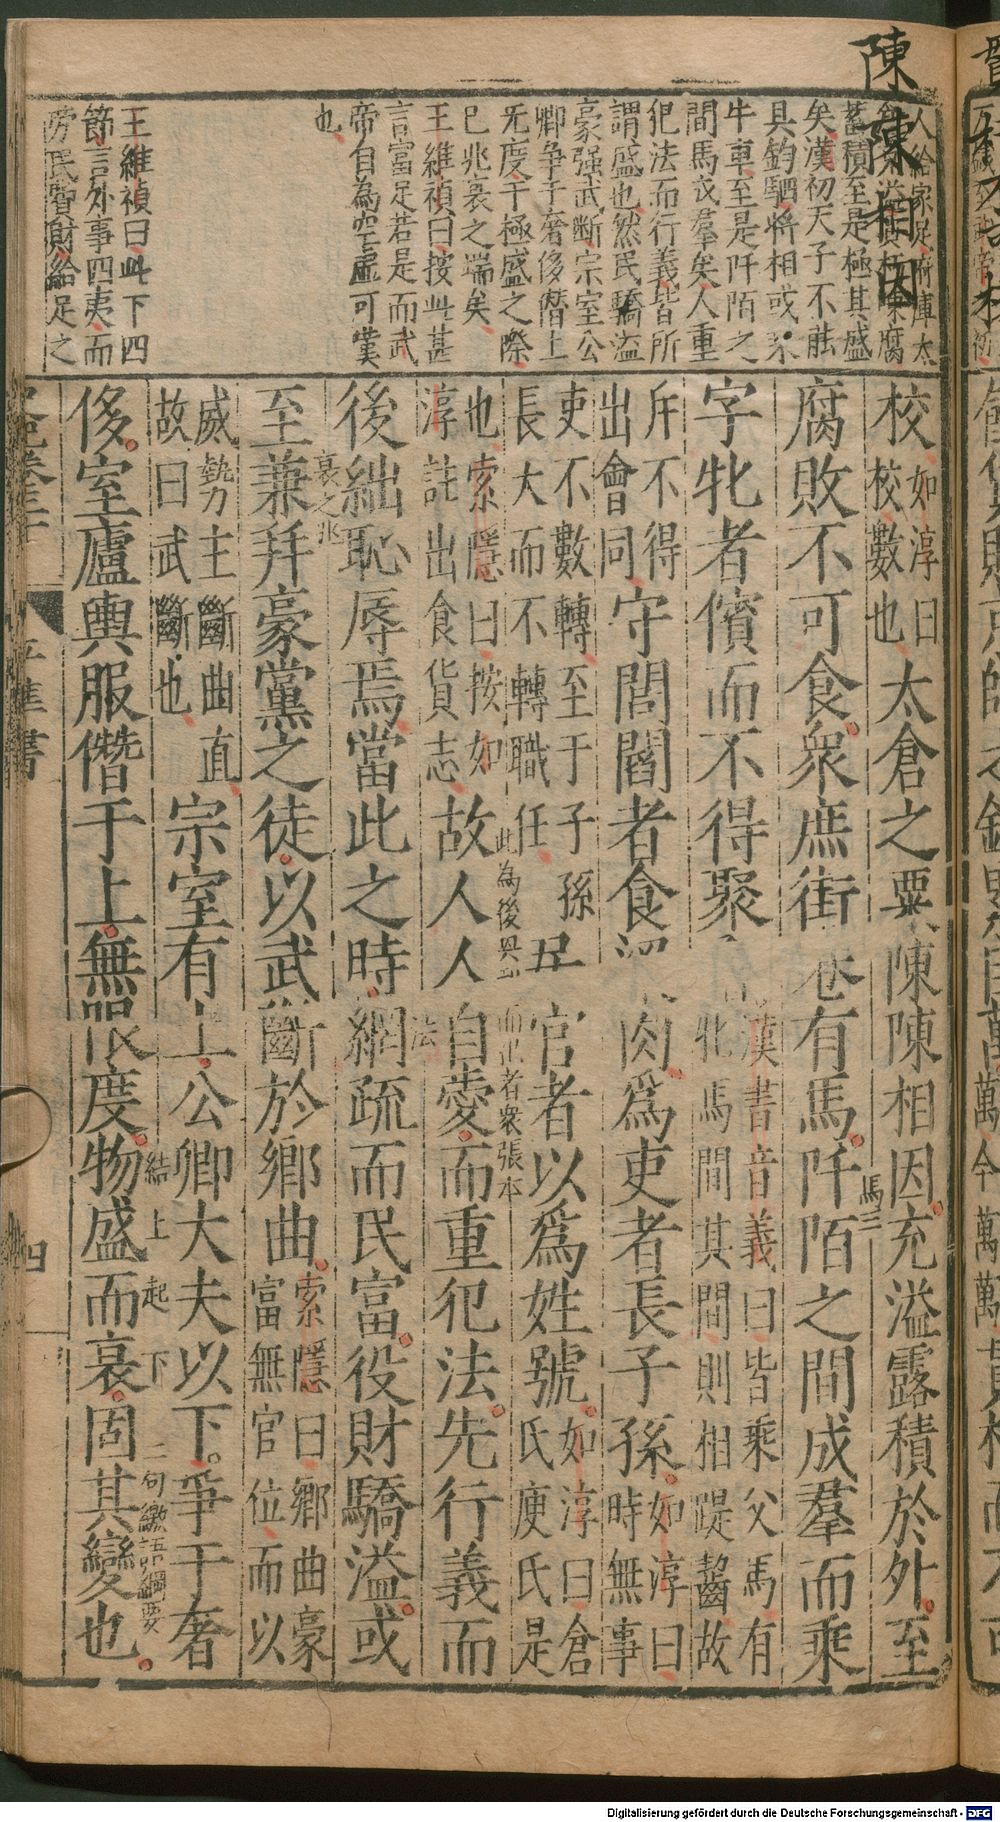 陳陳相因
人給家足府庫太
蓄積至是極其盛
矣漢初天子不能
具鈞駟將相或乘
牛車至是阡陌之
間馬成羣矣人重
犯法而行義皆所
謂盛也然民驕溢
豪强武斷宗室公
卿爭于奢侈僭上
无度于極盛之際
已兆衰之端矣
王維禎曰按此甚
言富足若是而武
帝自為空虛可嘆
也
王維禎曰此下四
節言外事四夷而
旁民智財給足之
校如淳曰校數也太倉之粟陳陳相因充溢露積於外至
腐敗不可食眾庶街巷有馬阡陌之間成羣而乘
字牝者儐而不得聚漢書音義曰皆乘父馬有牝馬間其間則相踶齧故
斥不得出會同守閭閻者食粱肉為吏者長子孫如淳曰時無事
吏不數轉至于子孫長大而不轉職任居官者以為姓號如淳曰倉氏庾氏是
也索隱曰按如淳註出食貨志故人人自愛而重犯法先行義而
後絀恥辱焉當此之時網疏而民富役財驕溢或
至兼并豪黨之徒以武斷於鄉曲索隱曰鄉曲豪富無官位而以
威勢主斷曲直故曰武斷也宗室有土公卿大夫以下爭于奢
侈室廬輿服僭于上無限度物盛而衰固其變也
馬三
此為後興
而出者眾張本
法
衰之兆
結上起下
二句繳語綱要
平準書
四
Digitalisierung gefördert durch die Deutsche Forschungsgemeinschaft - DFG